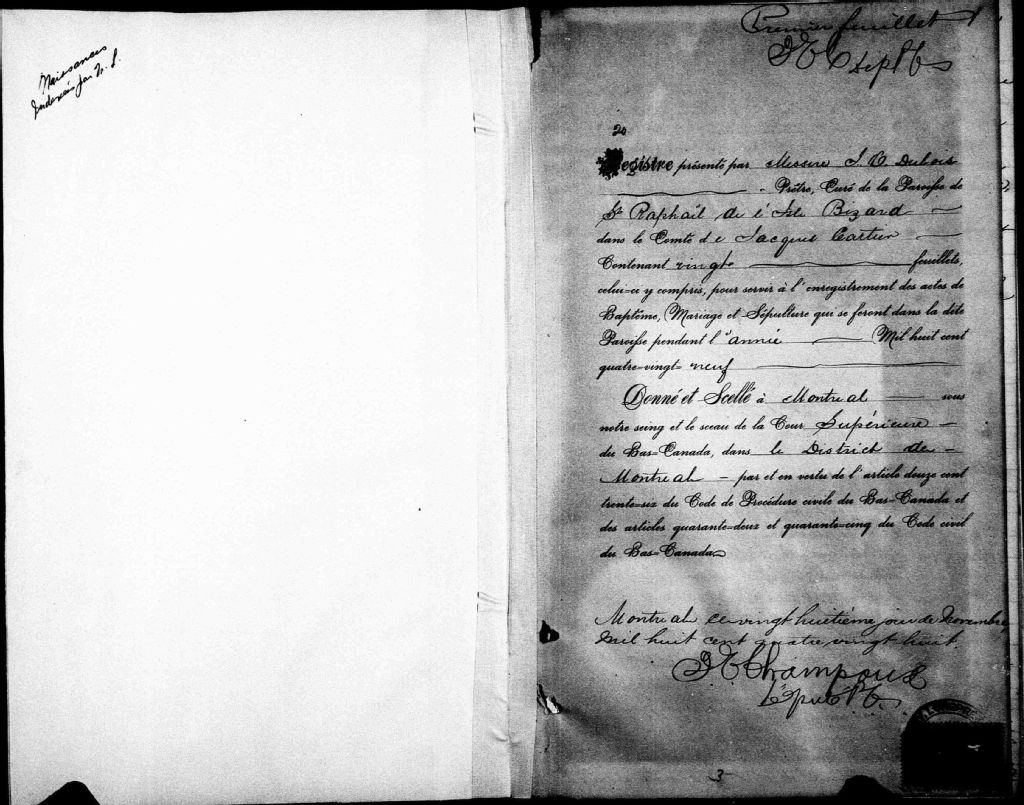 Naissances
Indexées par
Premier feuillet
Registre présenté par Messire J. O. Dubois
Prêtre, Curé de la Paroisse de
St Raphaël de l'Isle Bizard
dans le Comté de Jacques Cartier
Contenant vingt feuillets,
celui-ci y compris, pour servir à l'enregistrement des actes de
Baptême, Mariage et Sépulture qui se feront dans la dite
Paroisse pendant l'année Mil huit cent
quatre-vingt-neuf
Donné et Scellé à Montreal sous
notre seing et le sceau de la Cour Supérieure
du Bas-Canada, dans le District de
Montreal par et en vertu de l'article douze cent
trente-six du Code de Procédure civile du Bas-Canada et
des articles quarante-deux et quarante-cinq du Code civil
du Bas-Canada
Montreal ce vingt huitième jour de Novembre
Mil huit cent quatre vingt huit.
Champoux
3